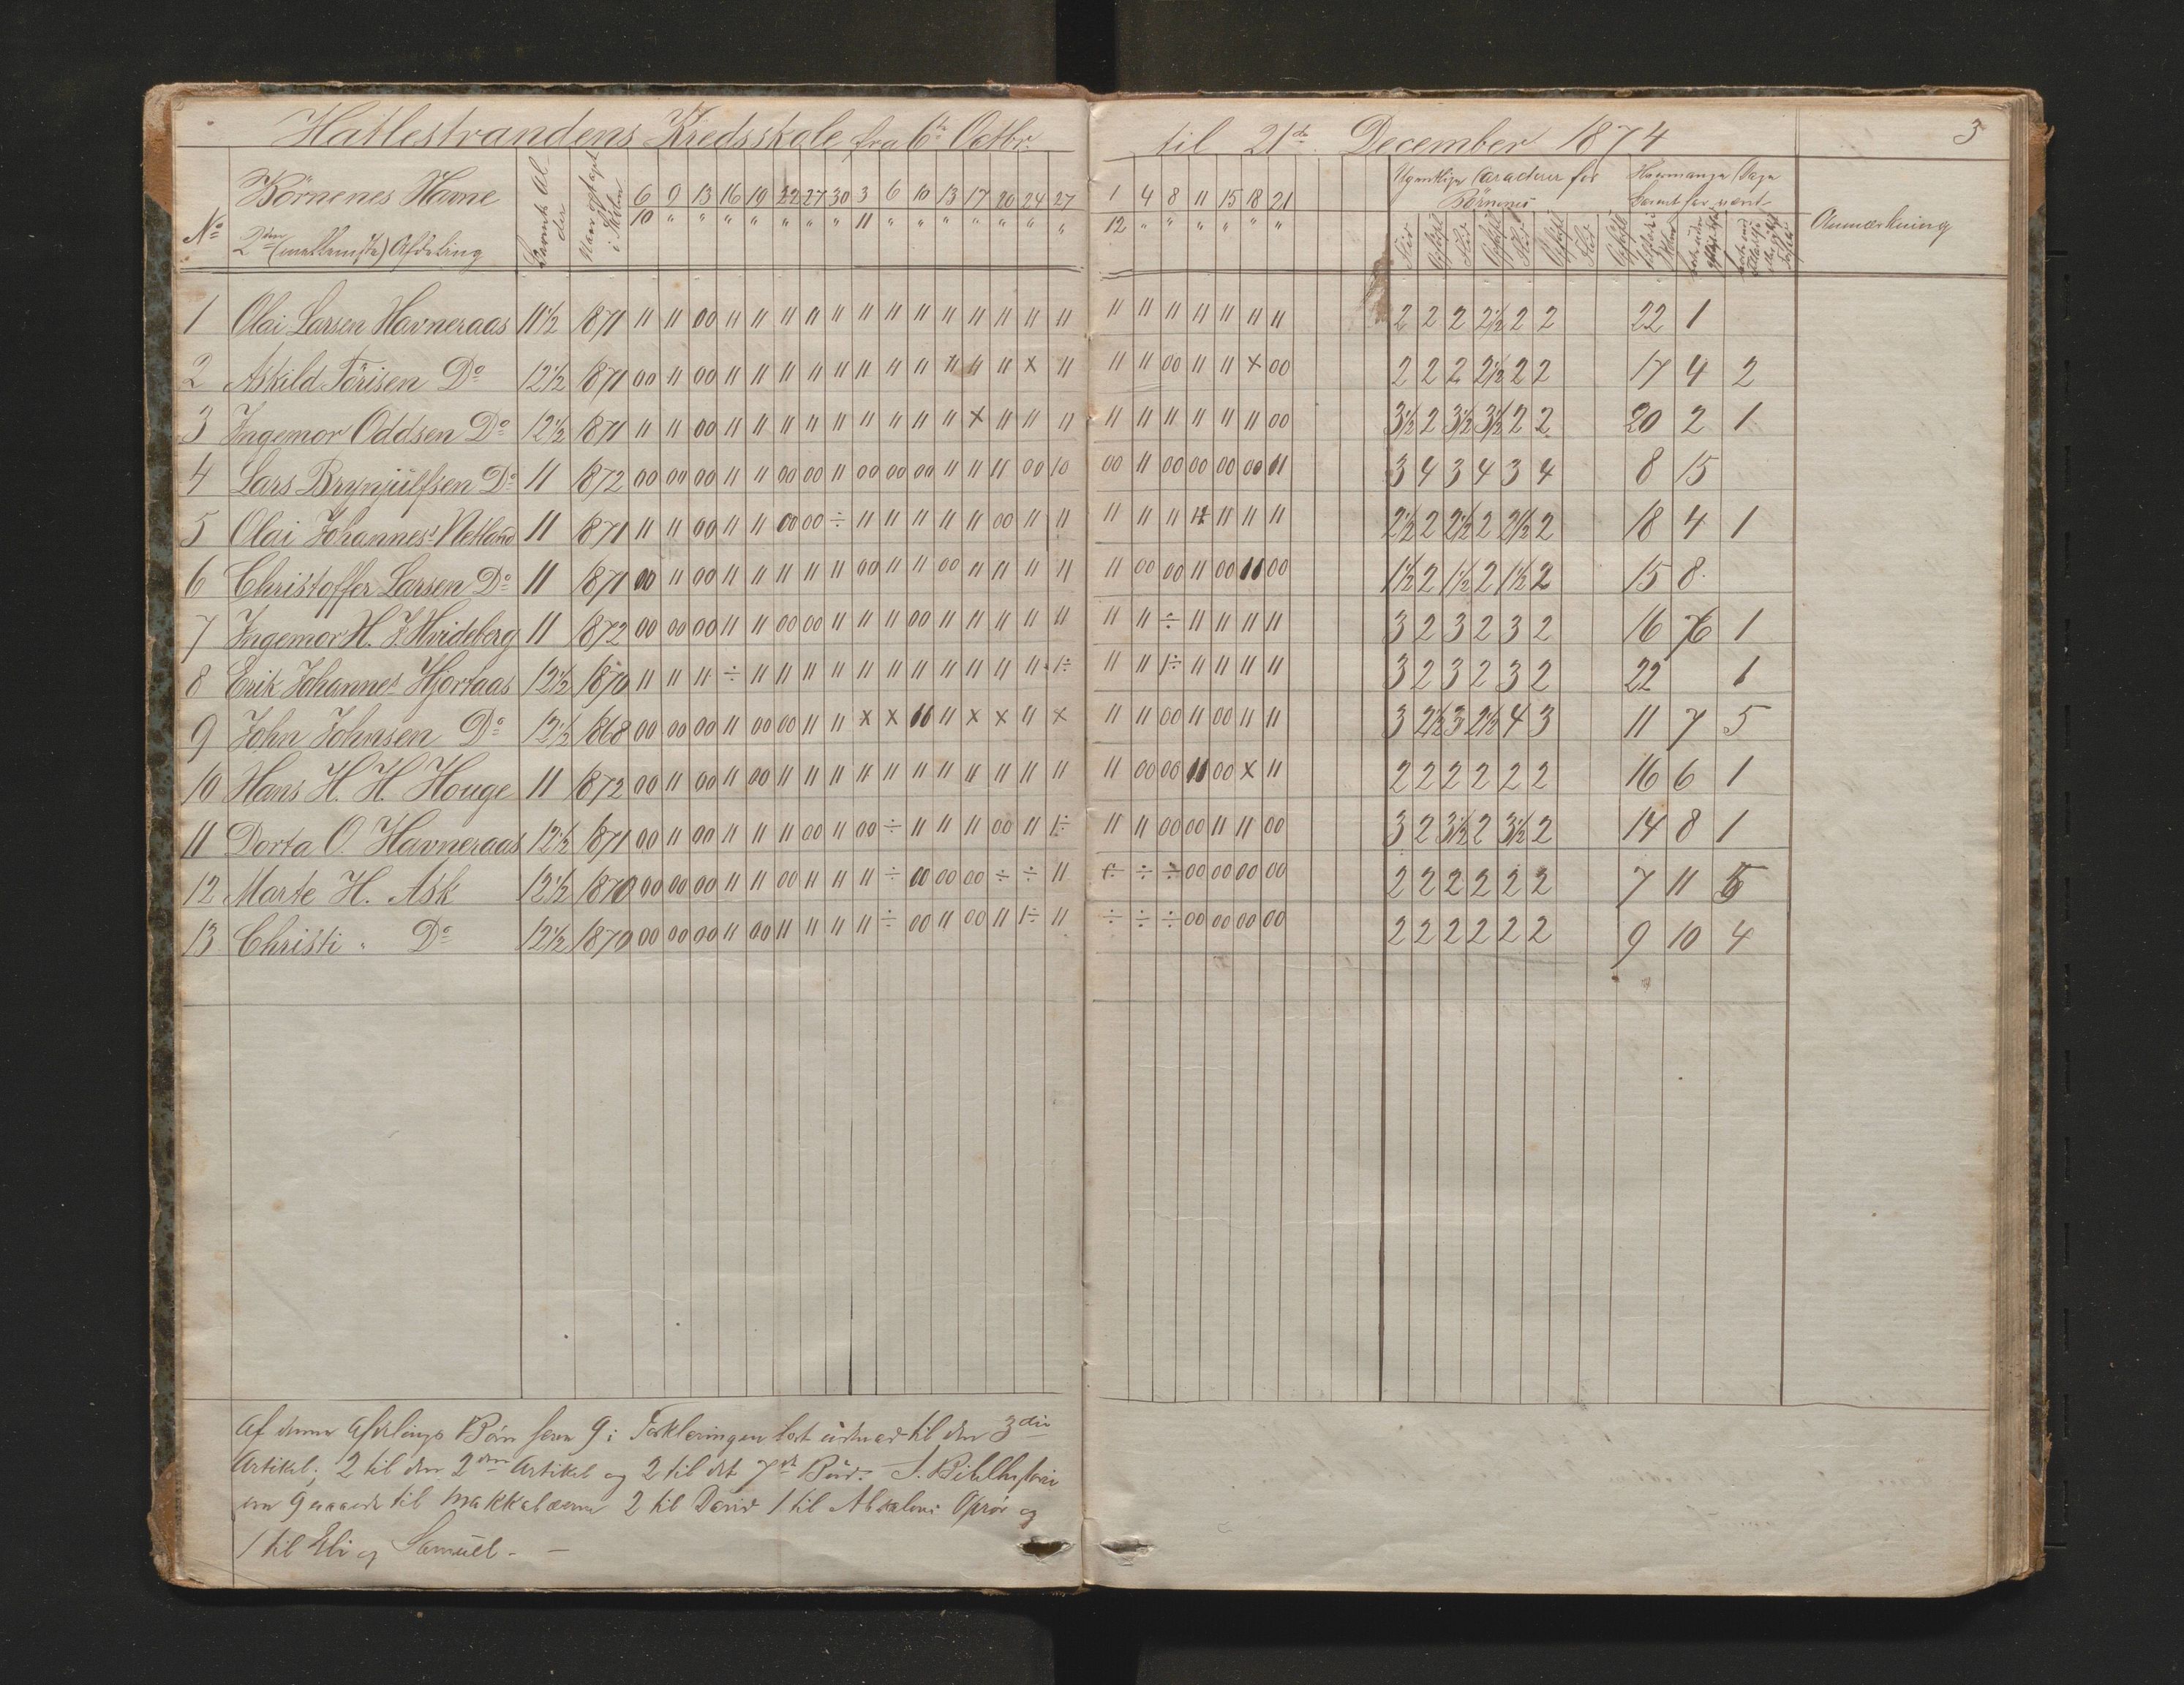 Hatlestrandens Kredsskole fra 6te Octbr. til 21de December 1874 3
No Börnenes Navne 2den (mellemste) Afdeling Barnets Alder Naar optaget i Skolen 6 9 13 16 19 22 27 30 3 6 10 13 17 20 24 27 1 4 8 11 15 18 21 Ugentlige Caracterer for Börnenes Hvormange Dage Barnet har været Anmærkning
10 " " " " " " " 11 " " " " " " " 12 " " " " " "
1 Olai Larsen Havneraas 11 1/2 1871 11 11 00 11 11 11 11 11 11 11 11 11 11 11 11 11 11 11 11 11 11 11 11 2 2 2 2 1/2 2 2 22 1
2 Askild Törisen Do 12 1/2 1871 00 11 00 11 11 11 11 11 11 11 11 11 11 11 x 11 11 11 00 11 11 x 00 2 2 2 2 1/2 2 2 17 4 2
3 Ingemor Oddsen Do 12 1/2 1871 11 11 00 11 11 11 11 11 11 11 11 11 x 11 11 11 11 11 11 11 11 11 00 3 1/2 2 3 1/2 3 1/2 2 2 20 2 1
4 Lars Brynjülfsen Do 11 1872 00 00 00 11 11 00 00 11 00 00 00 11 11 11 00 10 00 11 00 00 00 00 11 3 4 3 4 3 4 8 15
5 Olai Johannes Netland 11 1871 11 11 00 11 11 00 00 ÷ 11 11 11 11 11 00 11 11 11 11 11 11 11 11 11 2 1/2 2 2 1/2 2 2 1/2 2 18 4 1
6 Christoffer Larsen Do 11 1871 00 11 00 11 11 11 11 11 00 11 11 00 11 11 11 11 11 00 00 11 00 11 00 1 1/2 2 1 1/2 2 1 1/2 2 15 8
7 Ingemor H. J. Hvideberg 11 1872 00 00 00 11 11 00 00 11 11 11 00 11 11 11 11 11 11 11 ÷ 11 11 11 11 3 2 3 2 3 2 16 6 1
8 Erik Johannes Hjortaas 12 1/2 1870 11 11 11 ÷ 11 11 11 11 11 11 11 11 11 11 11 1÷ 11 11 1÷ 11 11 11 11 3 2 3 2 3 2 22 1
9 John Johnsen Do 12 1/2 1868 00 00 00 11 00 00 11 11 x x 11 11 x x 11 x 11 11 00 11 00 11 11 3 2 1/2 3 2 1/2 4 3 11 7 5
10 Hans H. H. Houge 11 1872 00 11 00 11 00 11 11 11 11 11 11 11 11 11 11 11 11 00 00 11 00 x 11 2 2 2 2 2 2 16 6 1
11 Dorta O. Havneraas 12 1/2 1871 00 11 00 11 11 11 00 11 00 ÷ 11 11 11 00 11 1÷ 11 11 00 00 11 11 00 3 2 3 1/2 2 3 1/2 2 14 8 1
12 Marte H. Ask 12 1/2 1870 00 00 00 11 11 00 11 11 11 ÷ 00 00 00 ÷ ÷ 11 ÷ ÷ ÷ 00 00 00 00 2 2 2 2 2 2 7 11 5
13 Christi " Do 12 1/2 1870 00 00 00 11 00 11 11 11 11 ÷ 00 11 00 11 1÷ 11 ÷ ÷ ÷ 00 00 00 00 2 2 2 2 2 2 9 10 4
Af denne Afdelings Börn have 9 i Forklaringen læst til den 3die
Artikel; 2 til den 2den Artikel og 2 til det 7de Bud. I Bibelhistorien
9 til Makkabæerne 2 til David 1 til Absalons Oprør og
1 til Eli og Samuel. -